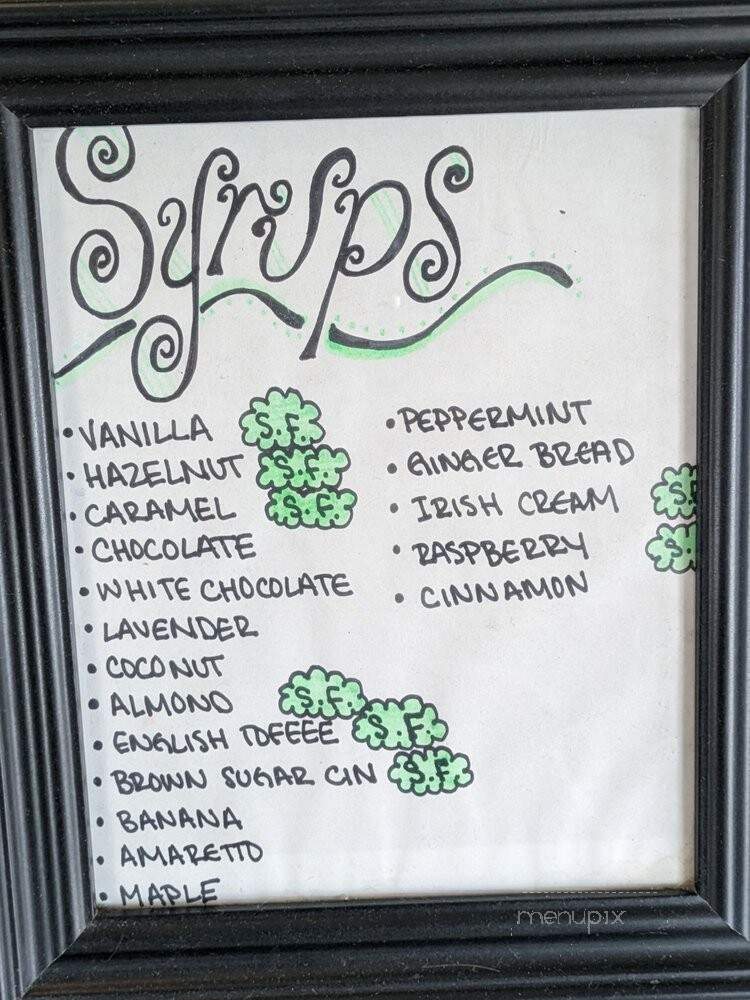 Syrups
• VANILLA S.F.
• HAZELNUT S.F.
• CARAMEL S.F.
• CHOCOLATE
• WHITE CHOCOLATE
• LAVENDER
• COCONUT
• ALMOND S.F.
• ENGLISH TOFEEE S.F.
• BROWN SUGAR CIN S.F.
• BANANA
• AMARETTO
• MAPLE
• PEPPERMINT
• GINGER BREAD
• IRISH CREAM S.F
• RASPBERRY S.
• CINNAMON
menupix